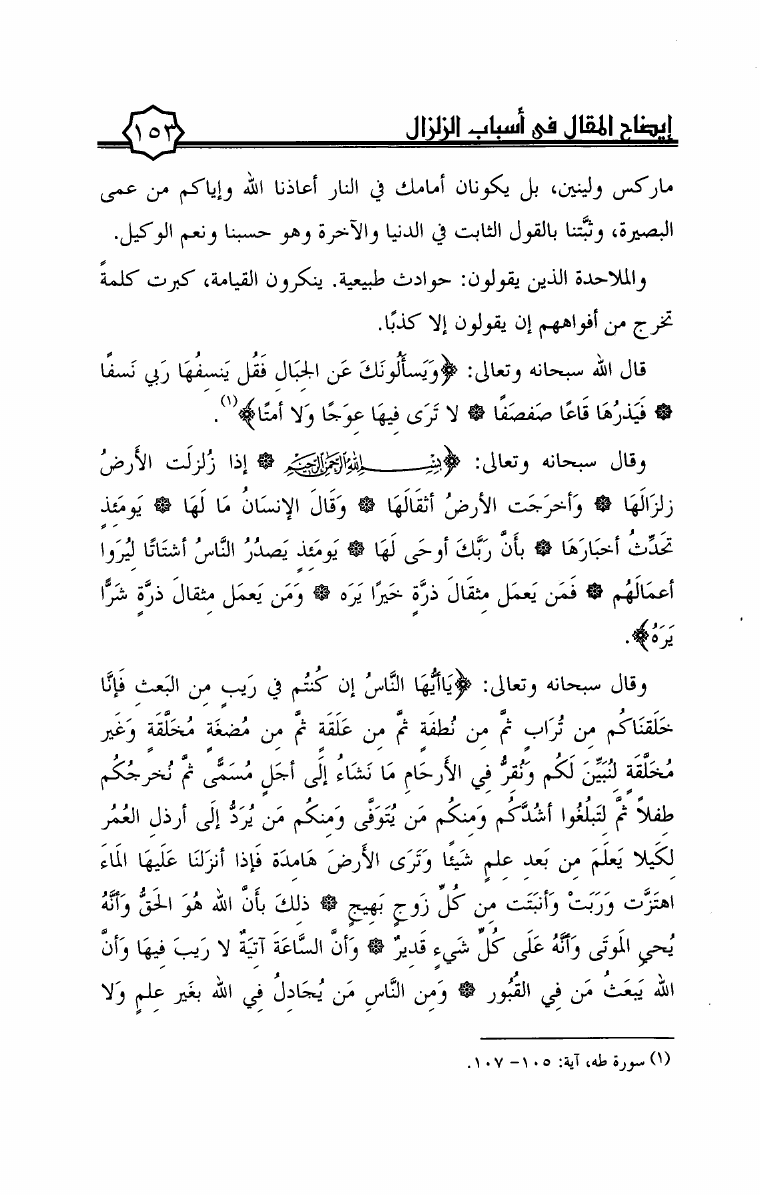 إيضاح المقال في أسباب الزلزال ١٥٣
ماركس ولينين، بل يكونان أمامك في النار أعاذنا الله وإياكم من عمى
البصيرة، وثبَّتنا بالقول الثابت في الدنيا والآخرة وهو حسبنا ونعم الوكيل.
والملاحدة الذين يقولون: حوادث طبيعية. ينكرون القيامة، كبرت كلمةً
تخرج من أفواههم إن يقولون إلا كذبًا.
قال الله سبحانه وتعالى: ﴿وَيَسأَلُونَكَ عَن الجِبَالِ فَقُل يَنسِفُهَا رَبِّي نَسفًا
۞ فَيَذرُهَا قَاعًا صَفصَفًا ۞ لا تَرَى فِيهَا عِوَجًا وَلا أمتًا﴾(١).
وقال سبحانه وتعالى: ﴿بِسْمِ اللَّهِ الرَّحْمَنِ الرَّحِيمِ ۞ إذا زُلزِلَت الأَرضُ
زِلزَالَهَا ۞ وَأخرَجَت الأرضُ أثقَالَهَا ۞ وَقَالَ الإنسَانُ مَا لَهَا ۞ يَومَئِذٍ
تحَدِّثُ أخبَارَهَا ۞ بأنَّ رَبَّكَ أوحَى لَهَا ۞ يَومَئِذٍ يَصدُرُ النَّاسُ أشتَاتًا لِيُرَوا
أعمَالَهُم ۞ فَمَن يَعمَل مِثقَالَ ذرَّةٍ خَيرًا يَرَه ۞ وَمَن يَعمَل مِثقالَ ذرَّةٍ شَرًّا
يَرَهُ﴾.
وقال سبحانه وتعالى: ﴿يَاأيُّهَا النَّاسُ إن كُنتُم في رَيبٍ من البَعثِ فَإنَّا
خَلَقنَاكُم مِن تُرَابٍ ثمَّ مِن نُطفَةٍ ثمَّ مِن عَلَقَةٍ ثمَّ مِن مُضغَةٍ مُخَلَّقَةٍ وَغَيرِ
مُخَلَّقَةٍ لِنُبَيِّنَ لَكُم وَنُقِرُّ فِي الأَرحَامِ مَا نَشَاءُ إلَى أجَلٍ مُسَمًّى ثمَّ نُخرِجُكُم
طِفلاً ثمَّ لِتَبلُغُوا أشُدَّكُم وَمِنكُم مَن يُتَوَفَّى وَمِنكُم مَن يُرَدُّ إلَى أرذلِ العُمُرِ
لِكَيلا يَعلَمَ مِن بَعدِ عِلمٍ شَيئًا وَتَرَى الأَرضَ هَامِدَةً فَإذا أنزَلنَا عَلَيهَا الَماءَ
اهتَزَّت وَرَبَتْ وَأنبَتَت مِن كُلِّ زَوجٍ بَهِيجٍ ۞ ذلِكَ بأَنَّ الله هُوَ الحَقُّ وَأنَّهُ
يُحيِ الَموتَى وَأنَّهُ عَلَى كُلِّ شَيءٍ قَدِيرٌ ۞ وَأنَّ السَّاعَةَ آتِيَةٌ لا رَيبَ فِيهَا وَأنَّ
الله يَبعَثُ مَن فِي القُبُورِ ۞ وَمِن النَّاسِ مَن يُجَادِلُ فِي الله بغَيرِ عِلمٍ وَلا
(١) سورة طه، آية: ١٠٥- ١٠٧.